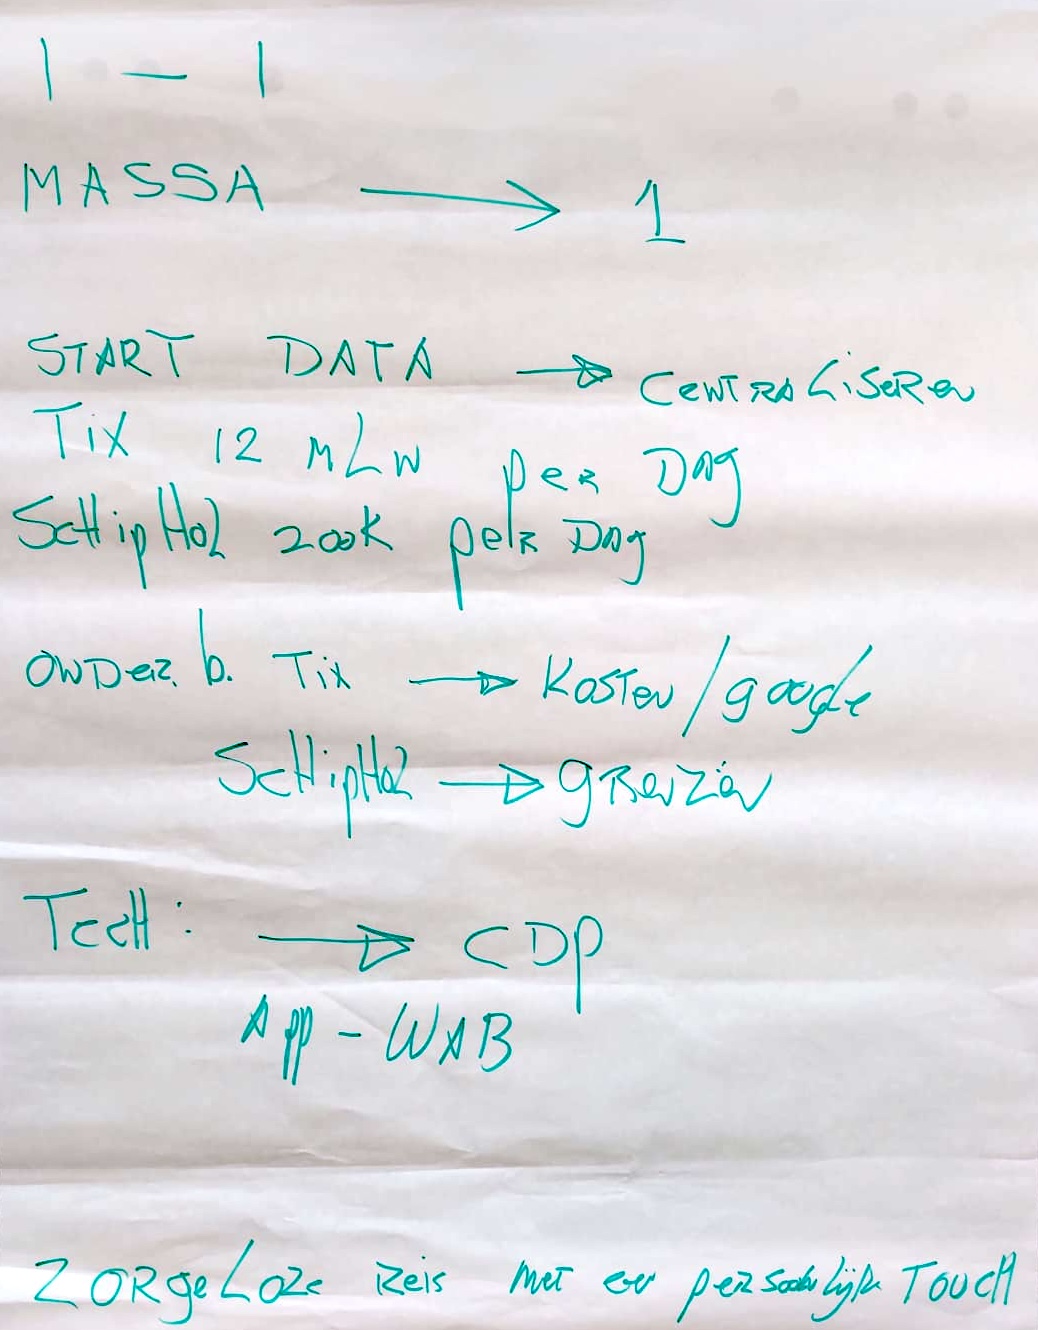 1 - 1
MASSA → 1
START DATA → CENTRALiSEREN
TiX 12 MLN per DAG
SCHipHOL 200K per DAG
ONDERB. TiX → KOSTEN / google
SCHipHOL → gRENZEN
TECH: → CDP
App - WAB
ZORgELOZE REiS MET EEN pERSOONLijke TOUCH